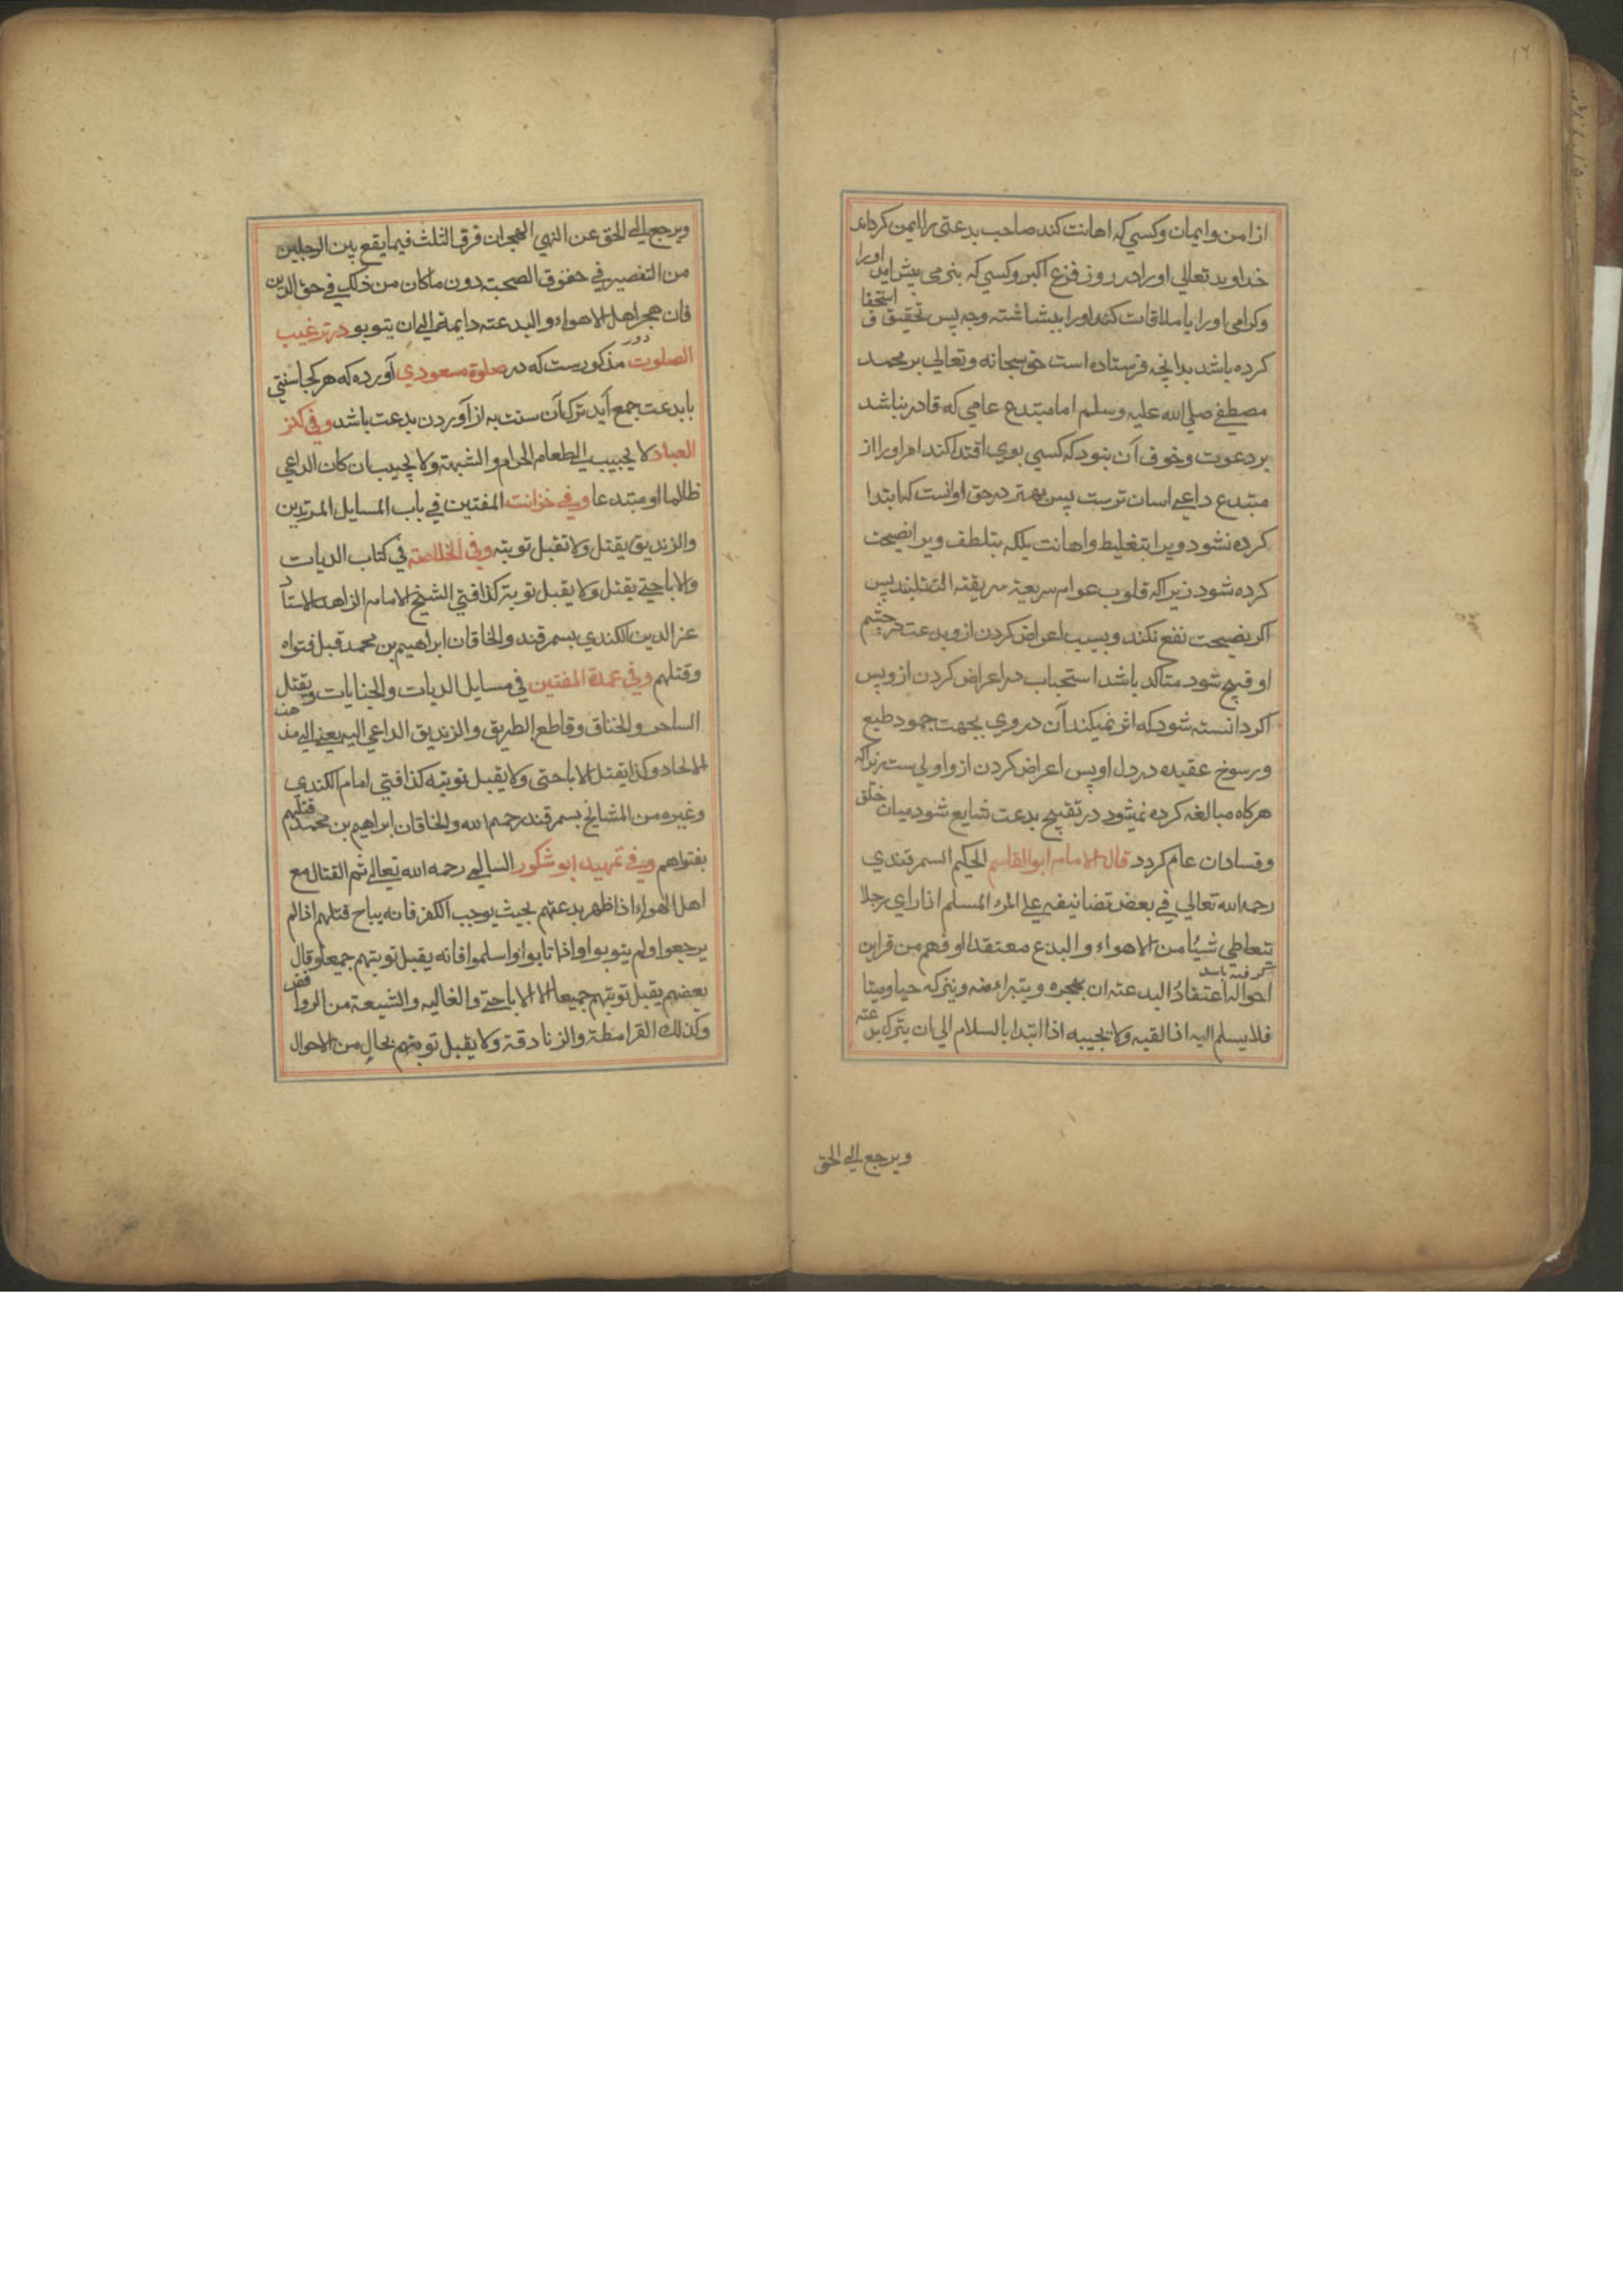 ١٦
از امن و ایمان و کسي که اهانت کند صاحب بدعتی را ایمن کرداند
خداوید تعالي اورا در روز فزع اکبر و کسي که بنرمی پیش اید اورا
و کرامی اورا یا ملاقات کند اورا ببشاشته وجه پس تحقیق استخفاف
کرده باشد بدانچه فرستاده است حق سبحانه و تعالي بر محمد
مصطفي صلي الله علیه وسلم اما مبتدع عامي که قادر نباشد
بر دعوت و خوف آن نبود که کسي بوي اقتدا کند امر اورا از
مبتدع داعي اسان ترست پس بهتر در حق او انست که ابتدا
کرده نشود ویرا بتغلیظ و اهانت بلکه بتلطف ویرا نصیحت
کرده شود زیراکه قلوب عوام سریعة التقلبند پس
اکر نصیحت نفع نکند و بسبب اعراض کردن ازو بدعت در چشم
او قبیح شود متاکد باشد استحباب در اعراض کردن ازو پس
اکر دانسته شود که اثر نمیکند آن در وي بجهت جمود طبع
و رسوخ عقیده در دل او پس اعراض کردن ازو اولي ست زیراکه
هرکاه مبالغه کرده نمیشود در تقبیح بدعت شایع شود میان خلق
و فساد ان عام کردد قال الامام ابوالقاسم الحکیم السمرقندي
رحمه الله تعالي في بعض تصانیفه علي المرء المسلم اذا راي رجلا
یتعاطي شیئا من الاهواء والبدع معتقدا او فهم من قراین
احواله اعتقاد البدعته ان یهجره ویتبراء منه ویترکه حیا ومیتا
فلا یسلم الیه اذا لقیه ولا یجیبه اذا ابتدا بالسلام الي ان یترک بدعته
ویرجع الي الحق
ویرجع الي الحق عن النهي الهجران فرق الثلث فیما یقع بین الرجلین
من التقصیر في حقوق الصحبته دون ماکان من ذلک في حق الدین
فان هجر اهل الاهواء والبدعته دایمة الي ان یتوبو در ترغیب
الصلوت مذکورست که در صلوة مسعودي آورده که هر کجا سنتي
با بدعت جمع آید ترک آن سنت به از آوردن بدعت باشد وفي کنز
العباد لا یجیب الي طعام الحرام والشبهة ولا یجیب ان کان الداعي
ظالما او مبتدعا وفي خزانت المفتین في باب المسایل المرتدین
والزندیق یقتل ولا تقبل توبته وفي الخلاصته في کتاب الدیات
والاباحیتي یقتل ولا یقبل توبته کذا فتي الشیخ الامام الزاهد الاستاد
عز الدین الکندي بسمرقند والخاقان ابراهیم بن محمد قبل فتواه
وقتلهم وفي عمدة المفتین في مسایل الدیات والجنایات ویقتل
الساحر والخناق وقاطع الطریق والزندیق الداعي الیه یعني الي مذهب
الالحاد وکذا یقتل الاباحتی ولا یقبل توبته کذا فتي امام الکندي
وغیره من المشایخ بسمرقند رحمهم الله والخاقان ابراهیم بن محمد قتلهم
بفتواهم وفي تمهید ابو شکور السالمي رحمه الله تعالي ثم القتال مع
اهل الهواء اذا ظهر بدعتهم بحیث یوجب الکفر فانه یباح قتلهم اذا لم
یرجعوا ولم یتوبوا واذا تابوا واسلموا فانه یقبل توبتهم جمیعا وقال
بعضهم یقبل توبتهم جمیعا الا الاباحتي والغالیه والشیعة من الروافض
وکذلک القرامطة والزنادقة ولا یقبل توبتهم بحال من الاحوال